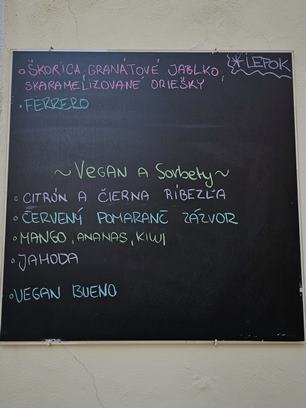 * LEPOK
• ŠKORICA, GRANÁTOVÉ JABLKO,
SKARAMELIZOVANÉ ORIEŠKY
• FERRERO
~ VEGAN A Sorbety ~
• CITRÓN A ČIERNA RÍBEZĽA
• ČERVENÝ POMARANČ ZÁZVOR
• MANGO, ANANAS, KIWI
• JAHODA
• VEGAN BUENO